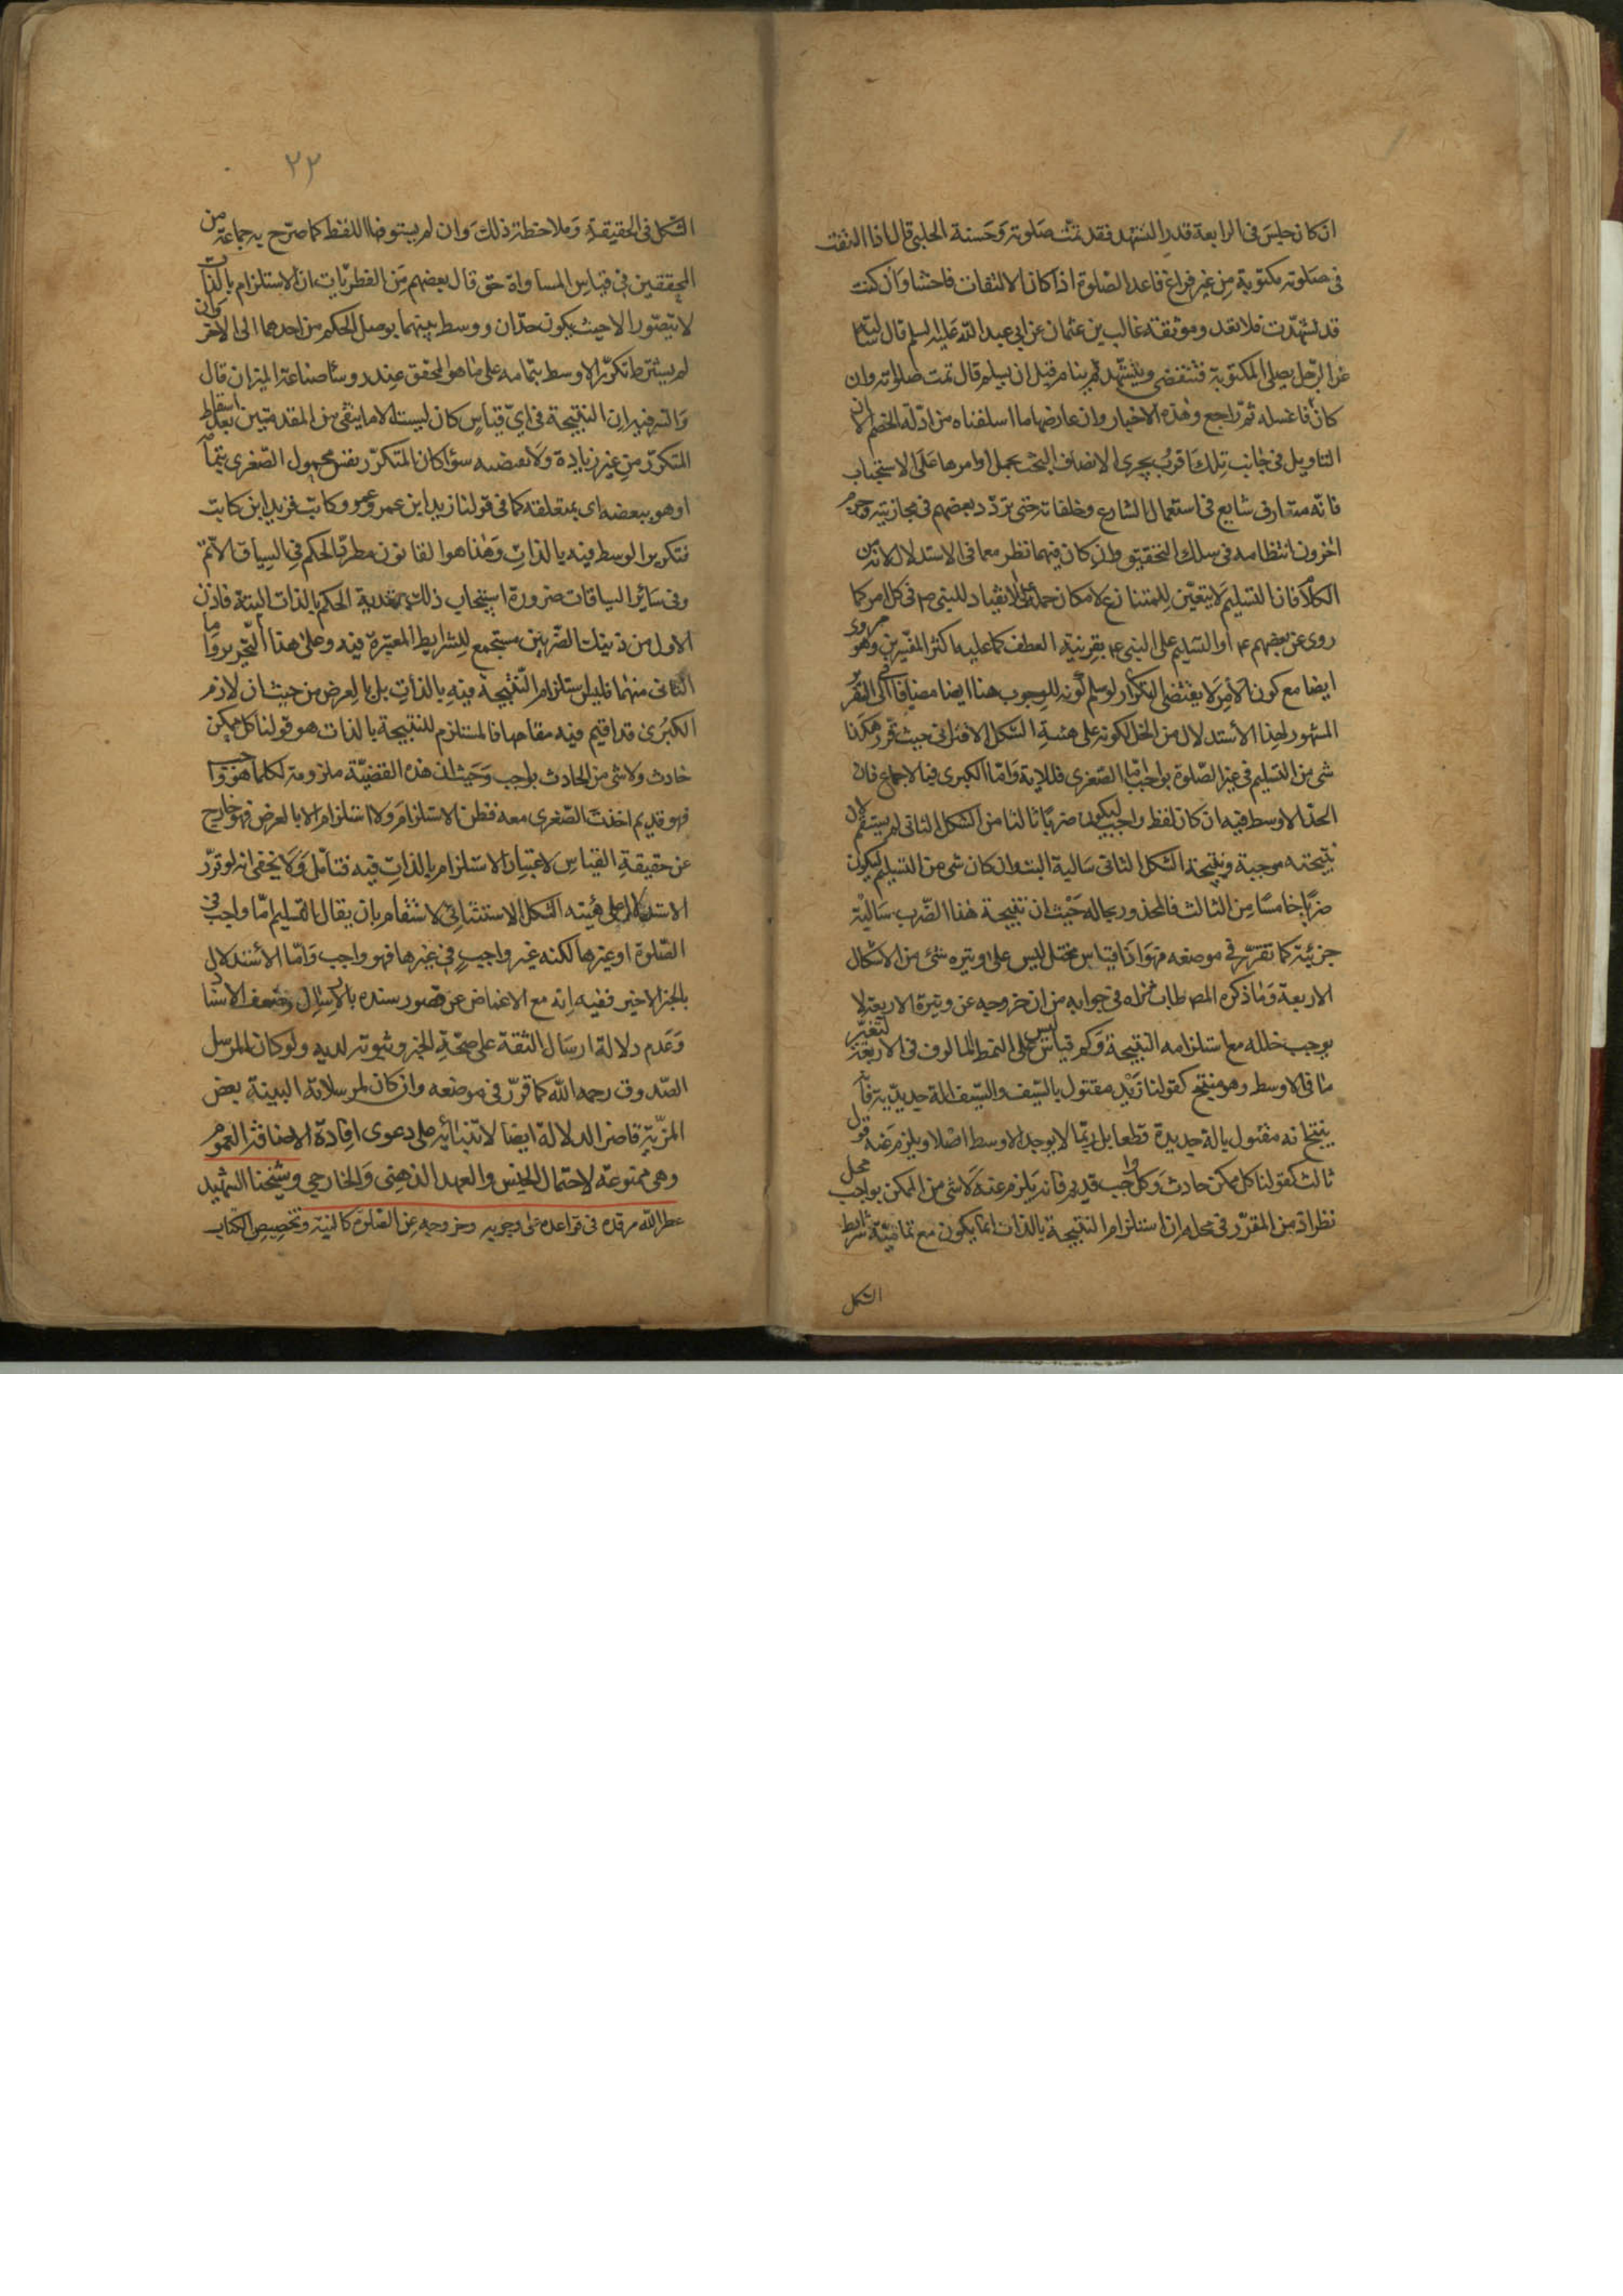 ان كان جلس فى الرابعة قدر التشهد فقد تمت صلوته وحسنة الحلبى قال اذا التفت
فى صلوته مكتوبة من غير فراغ فاعد الصلوة اذا كان الالتفات فاحشا وان كنت
قد تشهدت فلا تعد وموثقة غالب بن عثمان عن ابى عبد الله عليه السلم قال سالته
عن الرجل يصلى المكتوبة فتنقضى ويتشهد ثم ينام قبل ان يسلم قال تمت صلوته وان
كان فاغسله ثم راجع وهذه الاخبار وان عارضها ما اسلفناه من ادلة الخصم الا ان
التاويل فى جانب تلك اقرب يجرى الانصاف البحث بحمل اوامرها على الاستحباب
فانه متعارف شايع فى استعمال الشارع وخلفائه حتى تردد بعضهم فى مجازيته وجزم
اخرون انتظامه فى سلك التحقيق وان كان فيهما نظر معا فى الاستدلال لانه من
الكلام فان التسليم لا يتعين للمتنازع لامكان حمله على الانقياد للنبى ص فى كل امر كما
روى عن بعضهم ع او التسليم على النبى ع بقرينة العطف كما عليه اكثر المفسرين وهو مروى
ايضا مع كون الامر لا يقتضى التكرار ولو سلم كونه للوجوب هنا ايضا مضافا الى التقرر
المشهور لهذا الاستدلال من الخلل لكونه على هيئة الشكل الاقترانى حيث تقرر هكذا
شئ من التسليم فى غير الصلوة بواجب اما الصغرى فللاية واما الكبرى فبالاجماع فان
الحد الاوسط فيه ان كان لفظ واجب ليكون ضربا ثالثا من الشكل الثانى لم يستقم لان
نتيجته موجبة ونتيجة الشكل الثانى سالبة البتة وان كان شئ من التسليم ليكون
ضربا خامسا من الثالث فالمحذور بحاله حيث ان نتيجة هذا الضرب سالبة
جزئية كما تقرر فى موضعه فهو اذا قياس مختل ليس على وتيره شئ من الاشكال
الاربعة وما ذكره المص طاب ثراه فى جوابه من ان خروجه عن وتيرة الاربعة لا
يوجب خلله مع استلزامه النتيجة وكم قياس ليس على النمط المالوف فى الاربعة لتغير
ما فى الاوسط وهو منتج كقولنا زيد مقتول بالسيف والسيف الة حديدية فانه
ينتج انه مقتول بالة حديدة قطعا بل ربما لا يوجد الاوسط اصلا ويلزم عنه قول
ثالث كقولنا كل ممكن حادث وكل واجب قديم فانه يلزم عنه لا شئ من الممكن بواجب محل
نظر اذ من المقرر فى محله ان استلزام النتيجة بالذات انما يكون مع تمامية شرايط
الشكل
٢٢
الشكل فى الحقيقة وملاحظة ذلك وان لم يستوضا اللفظ كما صرح به جماعة من
المحققين فى قياس المساواة حتى قال بعضهم من الفطريات ان الاستلزام بالذات
لا يتصور الا حيث يكون حدان ووسط بينهما يوصل الحكم من احدهما الى الاخر وان
لم يشترط تكرر الاوسط بتمامه على ما هو المحقق عند روسا صناعة الميزان قال
والسر فيه ان النتيجة فى اى قياس كان ليست الا ما يبقى من المقدمتين بعد اسقاط
المتكرر من غير زيادة ولا نقصية سوا كان المتكرر نفس محمول الصغرى بتمامه
او هو ببعضه اى بمتعلقه كما فى قولنا زيد ابن عمرو وعمرو كاتب فزيد ابن كاتب
فتكرير الوسط فيه بالذات وهذا هو القانون مطرد الحكم فى السياق الاتم
وفى ساير السياقات ضرورة استيجاب ذلك تعدية الحكم بالذات البتة فاذن
الاول من ذينك الضربين مستجمع للشرايط المعتبرة فيه وعلى هذا التحرير واما
الثانى منهما فليس استلزام النتيجة فيه بالذات بل بالعرض من حيث ان لازم
الكبرى قد اقيم فيه مقامها فالمستلزم للنتيجة بالذات هو قولنا كل ممكن
حادث ولا شئ من الحادث بواجب وحيث ان هذه القضية ملزومة لكلما هو واجب
فهو قديم اخذت الصغرى معه فظن الاستلزام ولا استلزام الا بالعرض فهو خارج
عن حقيقة القياس لاعتبار الاستلزام بالذات فيه فتامل ولا يخفى انه لو قرر
الاستدلال على هيئة الشكل الاستثنائى لاستقام بان يقال التسليم اما واجب فى
الصلوة او غيرها لكنه غير واجب فى غيرها فهو واجب واما الاستدلال
بالخبر الاخير ففيه انه مع الاغماض عن قصور سنده بالارسال وضعف الاسناد
وعدم دلالة ارسال الثقة على صحة الخبر وثبوته لديه ولو كان المرسل
الصدوق رحمه الله كما قرر فى موضعه وان كان لمرسلاته البينة بعض
المزية قاصر الدلالة ايضا لابتنائه على دعوى افادة الاضافة العموم
وهى ممنوعة لاحتمال الجنس والعهد الذهنى والخارجى وشيخنا الشهيد
عطر الله مرقده فى قواعده على وجوبه وخروجه عن الصلوة كالنية وتخصيص الكتاب